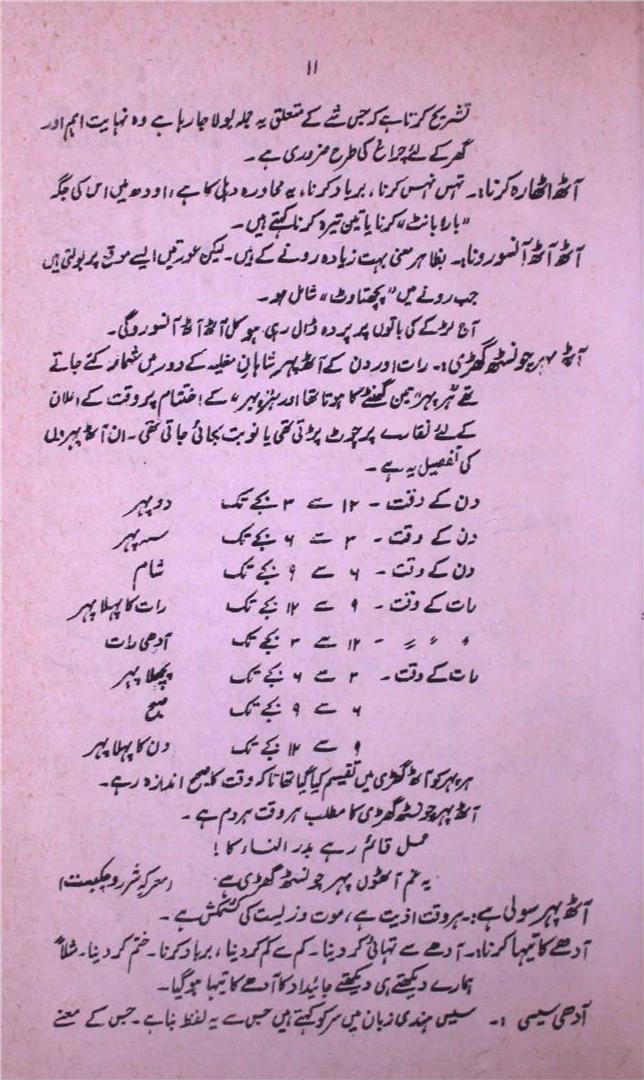 ۱۱
تشریح کرتا ہے کہ جس شے کے متعلق یہ جملہ بولا جا رہا ہے وہ نہایت اہم اور
گھر کے لئے چراغ کی طرح ضروری ہے۔
آٹھ اٹھارہ کرنا:۔ تہس نہس کرنا، برباد کرنا، یہ محاورہ دہلی کا ہے، اودھ میں اس کی جگہ
”بارا بانٹ“ کرنا یا تین تیرہ کرنا کہتے ہیں۔
آٹھ آٹھ آنسو رونا:۔ بظاہر معنی بہت زیادہ رونے کے ہیں۔ لیکن عورتیں ایسے موقع پر بولتی ہیں
جب رونے میں ”پچھتاوٹ“ شامل ہو۔
آج لڑکے کی باتوں پر پردہ ڈال رہی ہو کل آٹھ آٹھ آنسو روگی۔
آٹھ پہر چونسٹھ گھڑی:۔ رات اور دن کے آٹھ پہر شاہان مغلیہ کے دور میں شمار کئے جاتے
تھے ہر پہر ”تین گھنٹے“ کا ہوتا تھا اور ہر ”پہر“ کے اختتام پر وقت کے اعلان
کے لئے نقارے پر چوٹ پڑتی تھی یا نوبت بجائی جاتی تھی۔ ان آٹھ پہروں
کی تفصیل یہ ہے۔
دن کے وقت ۔ ۱۲ سے ۳ بجے تک دوپہر
دن کے وقت ۔ ۳ سے ۶ بجے تک سہ پہر
دن کے وقت ۔ ۶ سے ۹ بجے تک شام
رات کے وقت ۔ ۹ سے ۱۲ بجے تک رات کا پہلا پہر
〃 〃 〃 ۔ ۱۲ سے ۳ بجے تک آدھی رات
رات کے وقت ۔ ۳ سے ۶ بجے تک پچھلا پہر
۶ سے ۹ بجے تک صبح
۹ سے ۱۲ بجے تک دن کا پہلا پہر
ہر پہر کو آٹھ گھڑی میں تقسیم کیا گیا تھا تاکہ وقت کا صحیح اندازہ رہے۔
آٹھ پہر چونسٹھ گھڑی کا مطلب ہر وقت ہر دم ہے۔
محل قائم رہے بدر النساء کا!
یہ غم آٹھوں پہر چونسٹھ گھڑی ہے (معرکہ شرر و چکبست)
آٹھ پہر سولی ہے:۔ ہر وقت اذیت ہے، موت و زیست کی کشمکش ہے۔
آدھے کا تیہا کرنا:۔ آدھے سے تہائی کر دینا۔ کم سے کم کر دینا، برباد کرنا۔ ختم کر دینا۔ مثلاً
ہمارے دیکھتے ہی دیکھتے جائیداد کا آدھے کا تیہا ہو گیا۔
آدھی سیسی :۔ سیس ہندی زبان میں سر کو کہتے ہیں جس سے یہ لفظ بنا ہے۔ جس کے معنے